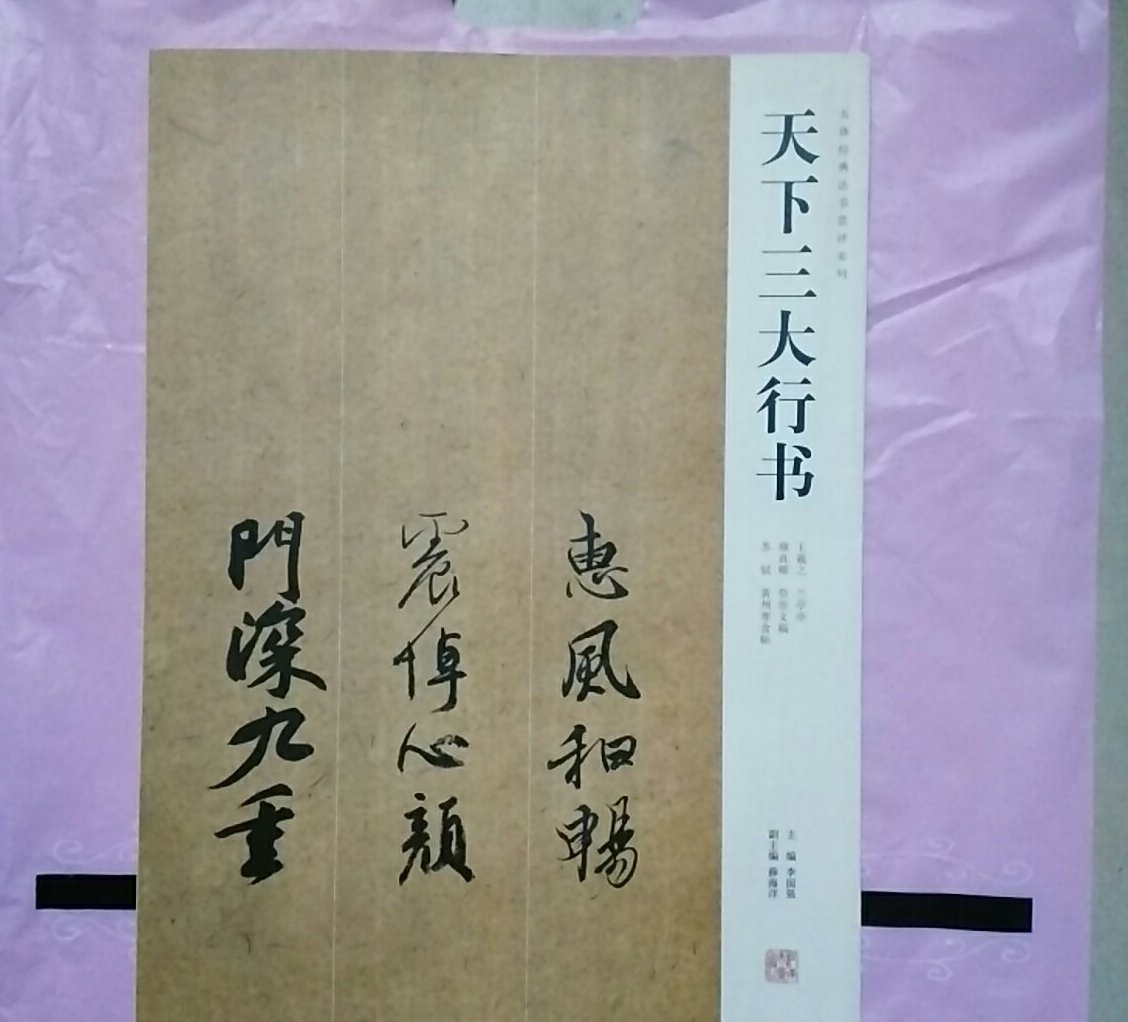 五体经典法书赏评系列
天下三大行书
王羲之 兰亭序
颜真卿 祭侄文稿
苏轼 黄州寒食帖
主编 李国强
副主编 薛海洋
惠风和畅
震悼心颜
門深九重